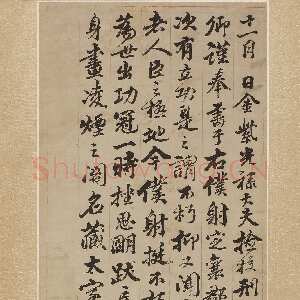 十一月 日金紫光祿大夫撿挍刑
卿謹奉書于右僕射定襄郡
次有立功是之謂不朽抑又聞
者人臣之極地今僕射挺不朽
為世出功冠一時挫思明跋扈
身畫凌煙之閣名藏太室